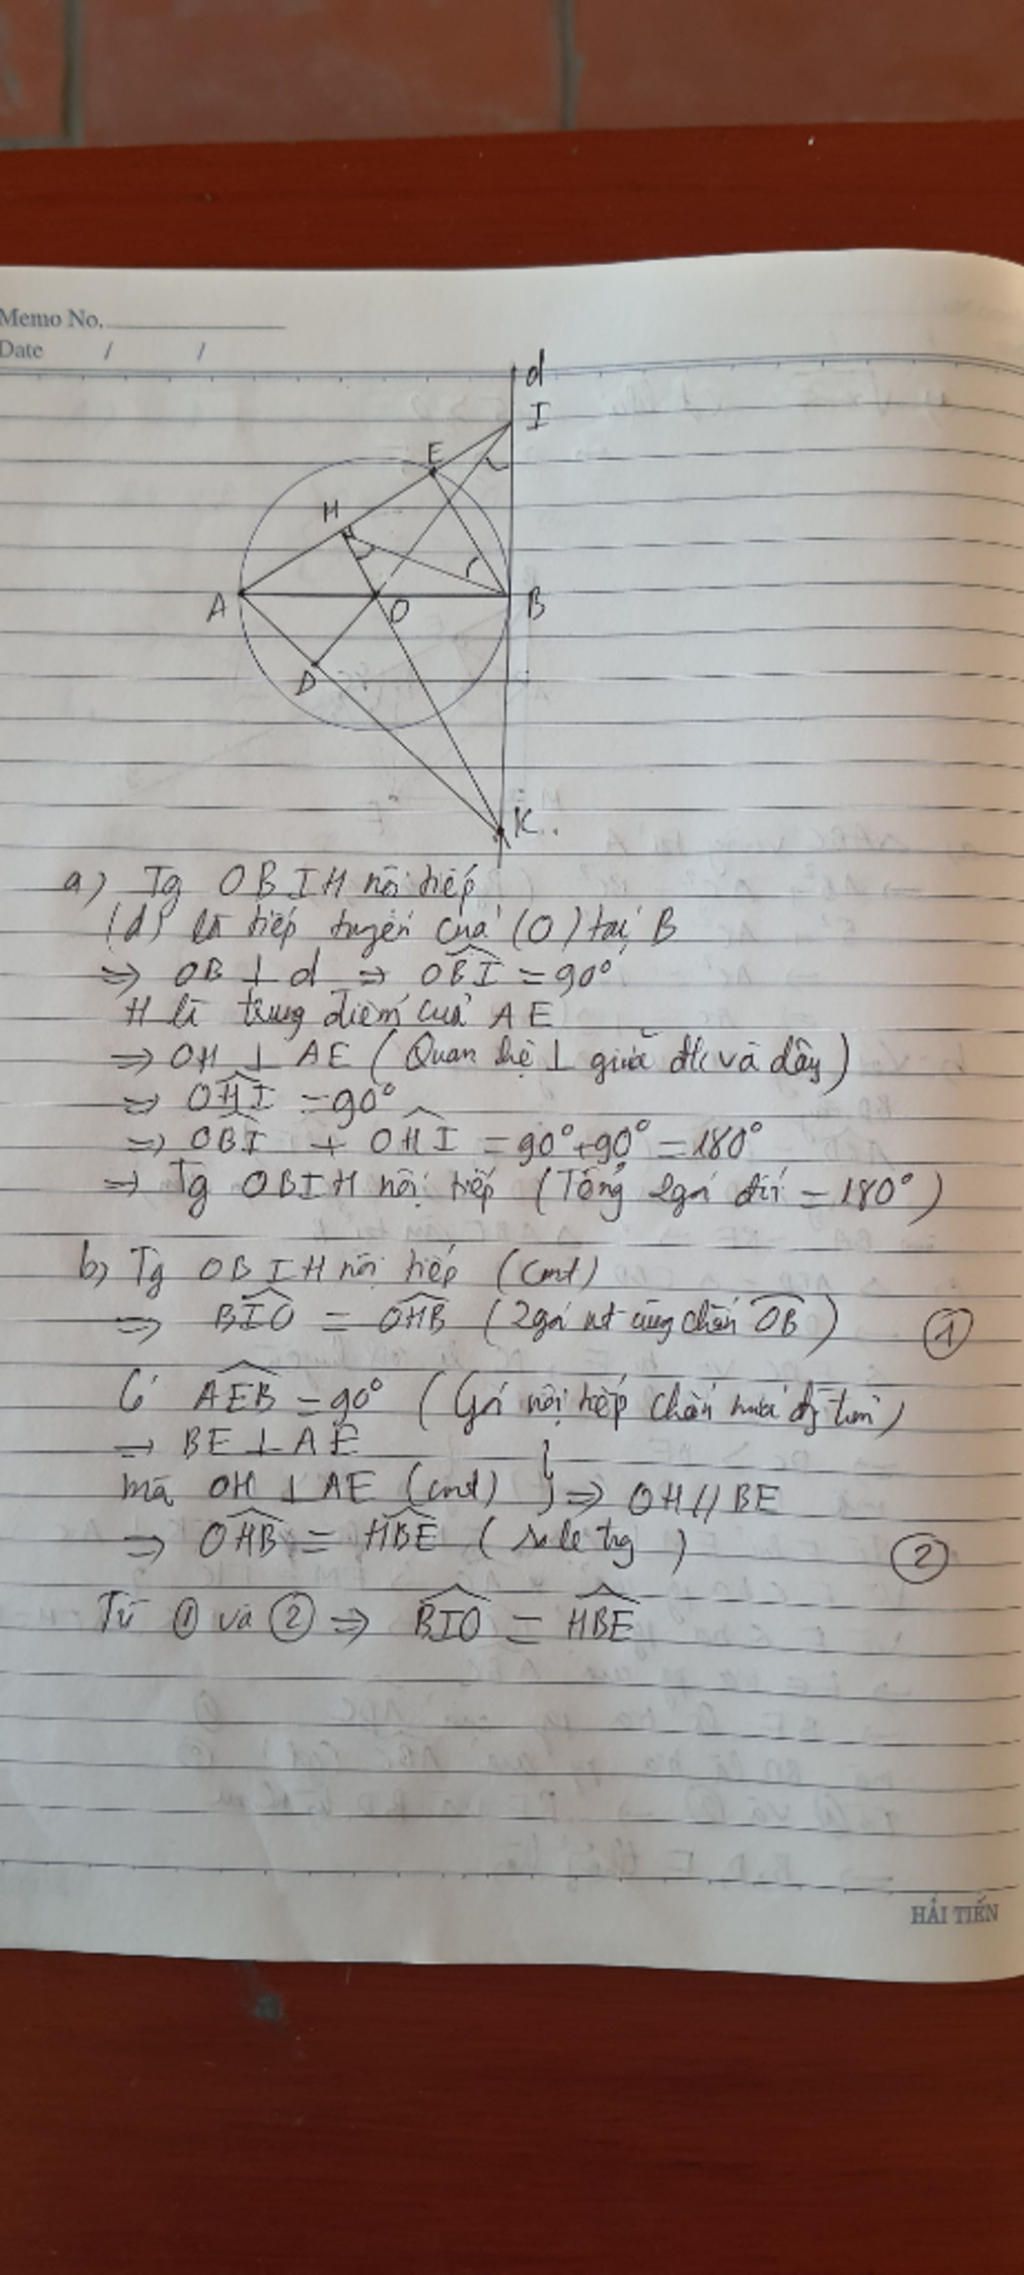 Memo No.
Date / /
d
I
E
H
A
O
B
D
K
a) Tg OBIH nội tiếp
(d) là tiếp tuyến của (O) tại B
=> OB ⊥ d => \widehat{OBI} = 90°
H là trung điểm của AE
=> OH ⊥ AE (Quan hệ ⊥ giữa đk và dây)
=> \widehat{OHI} = 90°
=> \widehat{OBI} + \widehat{OHI} = 90° + 90° = 180°
=> Tg OBIH nội tiếp (Tổng 2 góc đối = 180°)
b) Tg OBIH nội tiếp (cmt)
=> \widehat{BIO} = \widehat{OHB} (2 góc nt cùng chắn \overset{\frown}{OB}) ①
Có \widehat{AEB} = 90° (Góc nội tiếp chắn nửa đg tròn)
=> BE ⊥ AE
mà OH ⊥ AE (cmt) } => OH // BE
=> \widehat{OHB} = \widehat{HBE} (so le trg) ②
Từ ① và ② => \widehat{BIO} = \widehat{HBE}
HẢI TIẾN